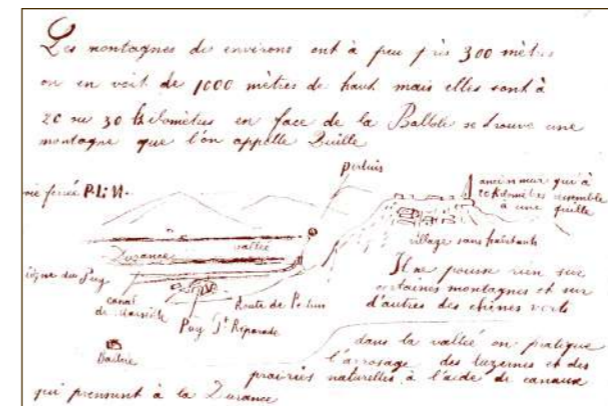 Les montagnes des environs ont à peu près 300 mètres
on en voit de 1000 mètres de haut mais elles sont à
20 ou 30 kilomètres en face de la se trouve une
montagne que l'on appelle Quille
Pertuis
voie ferrée P.L.M.
ancien mur qui à
20 kilomètres ressemble
à une quille
vallée
Durance
village sans habitants
du Puy
canal
de Marseille
Route de Pertuis
Puy Ste Réparade
Il ne pousse rien sur
certaines montagnes et sur
d'autres des chênes verts
dans la vallée on pratique
l'arrosage des luzernes et des
prairies naturelles à l'aide de canaux
qui prennent à la Durance